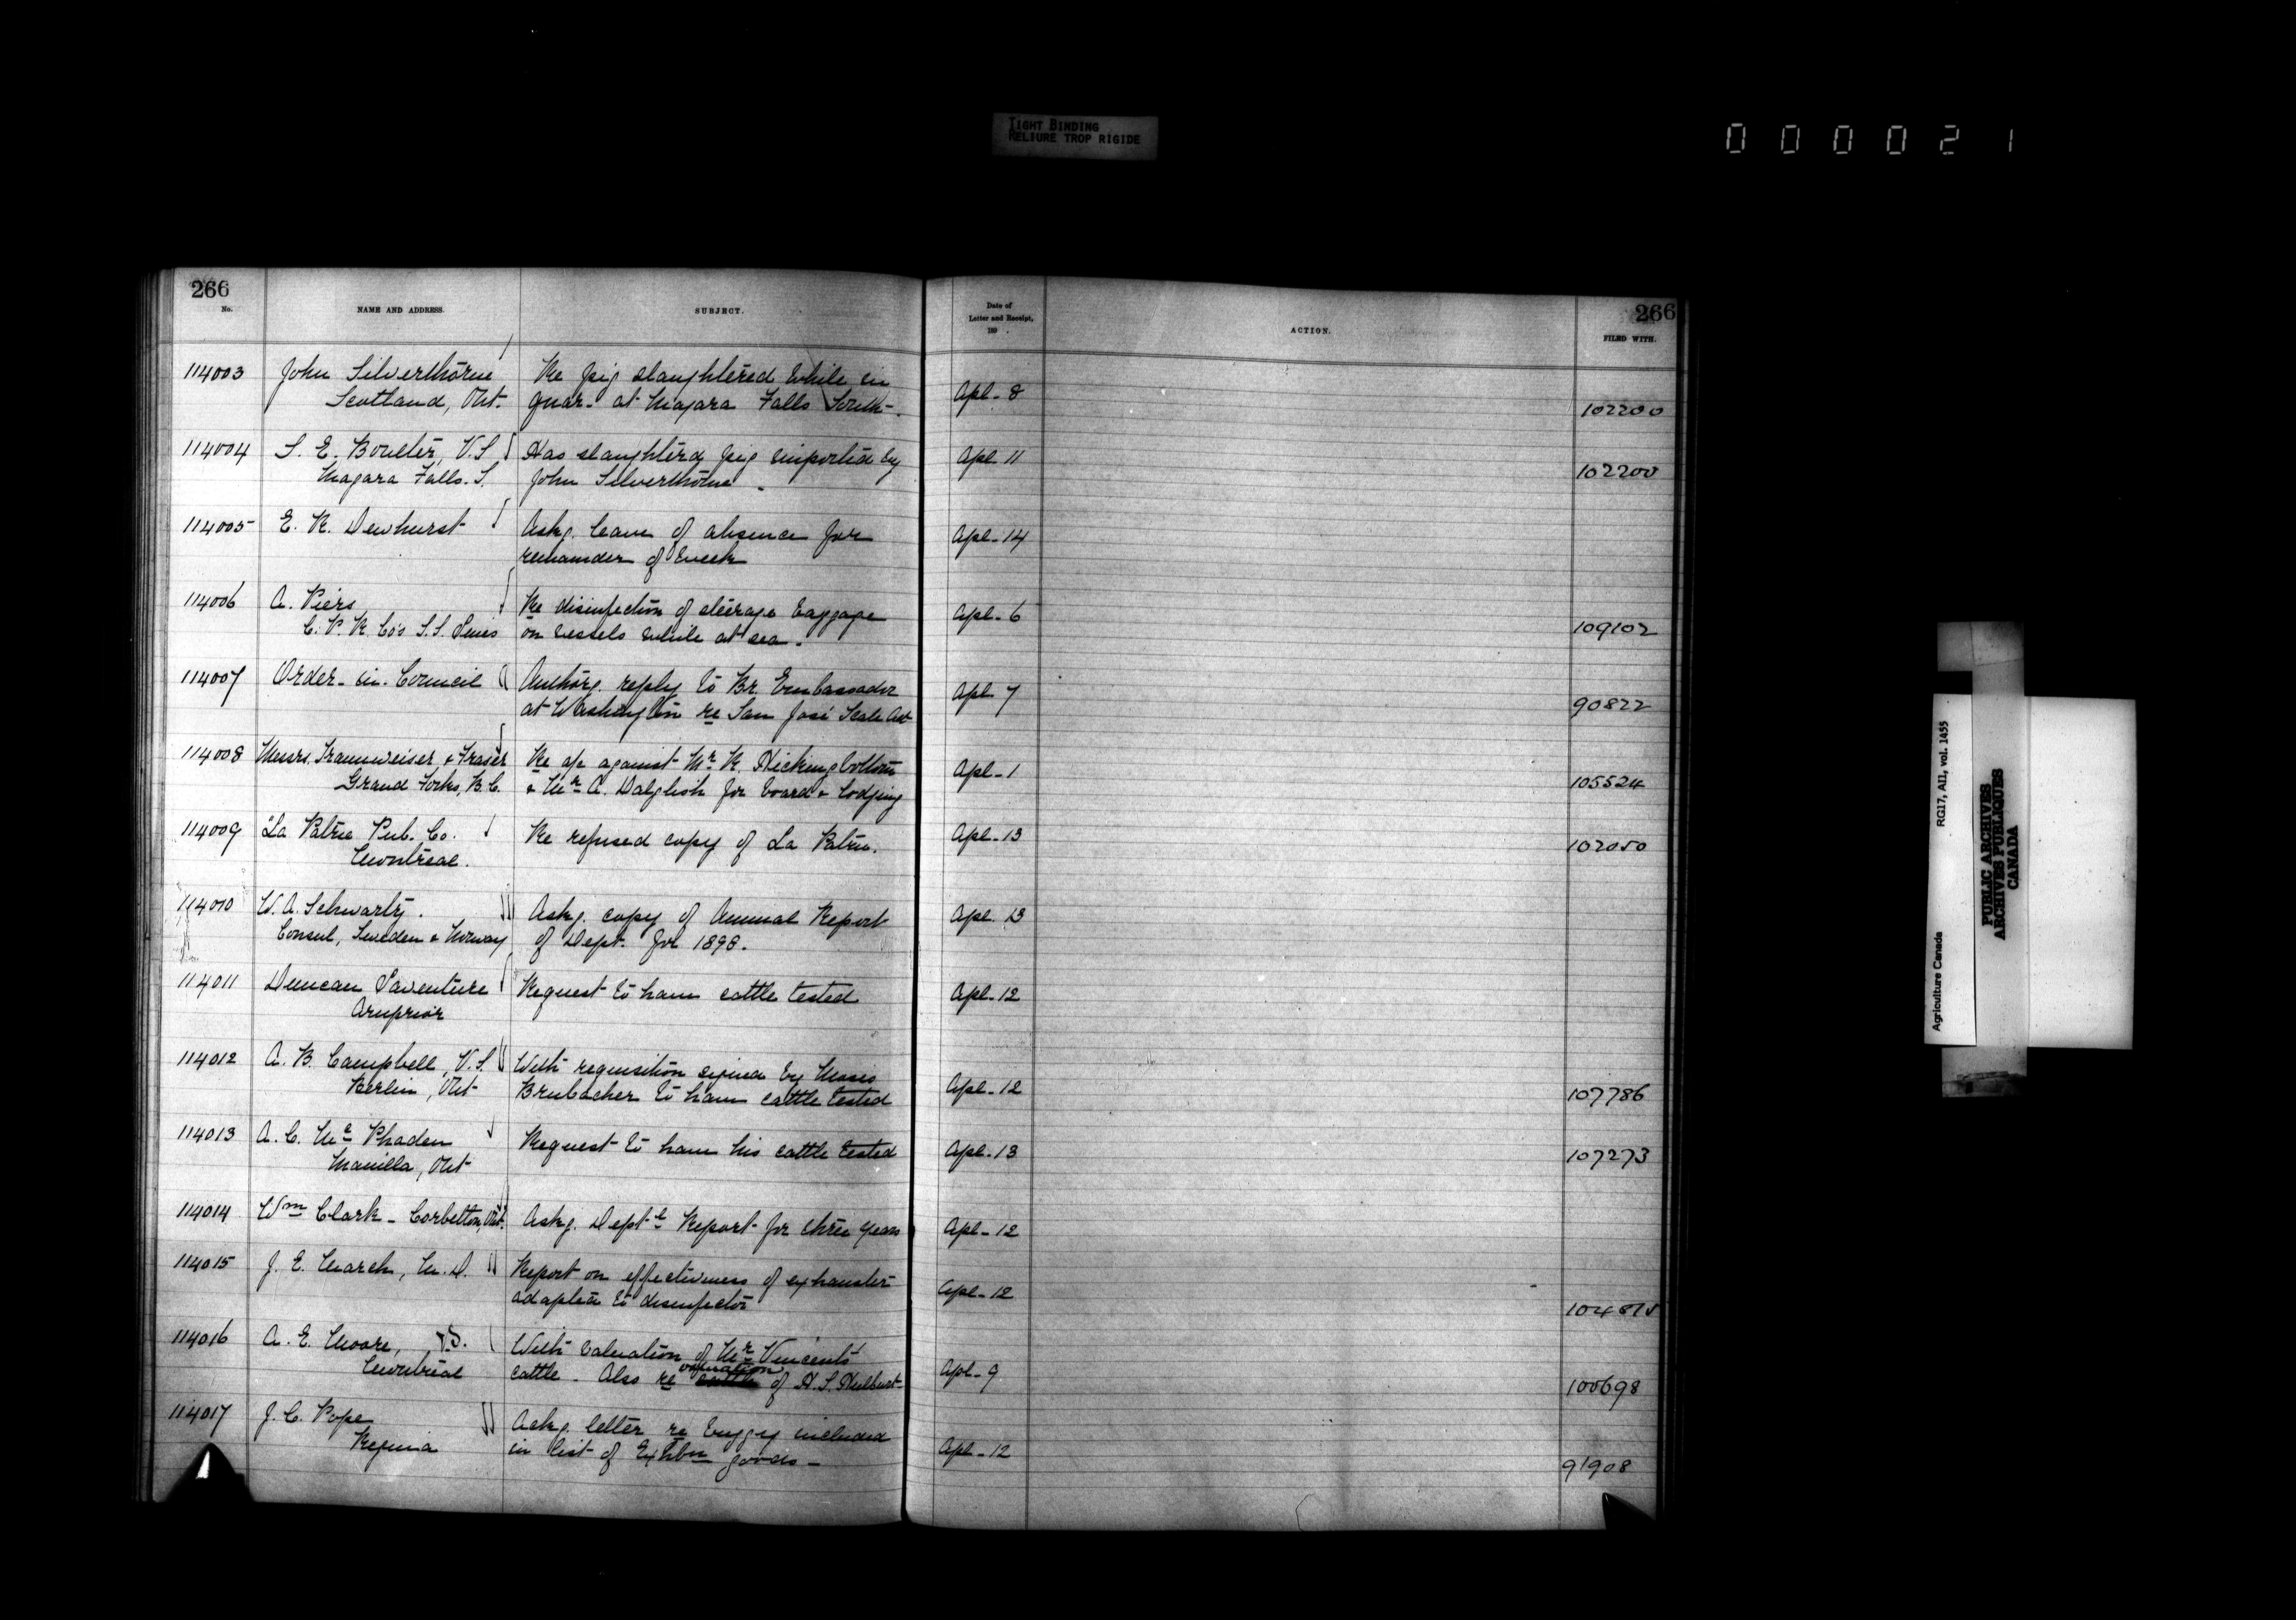 TIGHT BINDING
RELIURE TROP RIGIDE
000021
266
No.
NAME AND ADDRESS.
SUBJECT.
Date of
Letter and Receipt,
189 .
ACTION.
266
FILED WITH.
114003 John Silverthorne Re pig slaughtered while in
Scotland, Ont. quar- at Niagara Falls South- Apl- 8 102200
114004 S. E. Boulter, V.S Has slaughtered pig imported by Apl 11
Niagara Falls. S. John Silverthorne - 102200
114005 E. R. Dewhurst Askg. leave of absence for Apl- 14
remainder of week
114006 A. Piers Re disinfection of steerage baggage Apl- 6
C. P. R. Co's S.S. Lines on vessels while at sea - 109102
114007 Order-in-Council Authorg. reply to Br. Embassador Apl 7
at Washington re San José Scale Act 90822
114008 Messrs. Traunweiser & Fraser Re a/c against Mr R. Hickingbottom Apl- 1
Grand Forks, B.C. & Mr A. Dalglish for board & lodging 105524
114009 "La Patrie Pub. Co. Re refused copy of La Patrie. Apl- 13 102050
Montreal.
114010 W. A. Schwartz. Askg. copy of Annual Report Apl. 13
Consul, Sweden & Norway of Dept. for 1898.
114011 Duncan Laventure Request to have cattle tested Apl- 12
Arnprior
114012 A. B. Campbell, V.S. With requisition signed by Moses
Berlin, Ont Brubacher to have cattle tested Apl- 12 107786
114013 A. C. Mc Phaden Request to have his cattle tested Apl- 13 107273
Manilla, Ont
114014 Wm Clark - Corbetton, Ont. Askg. Deptl Report for three years Apl- 12
114015 J. E. March, M.D. Report on effectiveness of exhauster
adapted to disinfector Apl- 12 104815
114016 A. E. Moore, V.S. With valuation of Mr Vincent's
valuation
Montreal cattle - Also re of H. S. Hulburt- Apl- 9 100698
114017 J. C. Pope Askg. letter re buggy included
Regina in list of Exhbn goods - Apl- 12 91908
Agriculture Canada RG17, AII, vol. 1455
PUBLIC ARCHIVES
ARCHIVES PUBLIQUES
CANADA